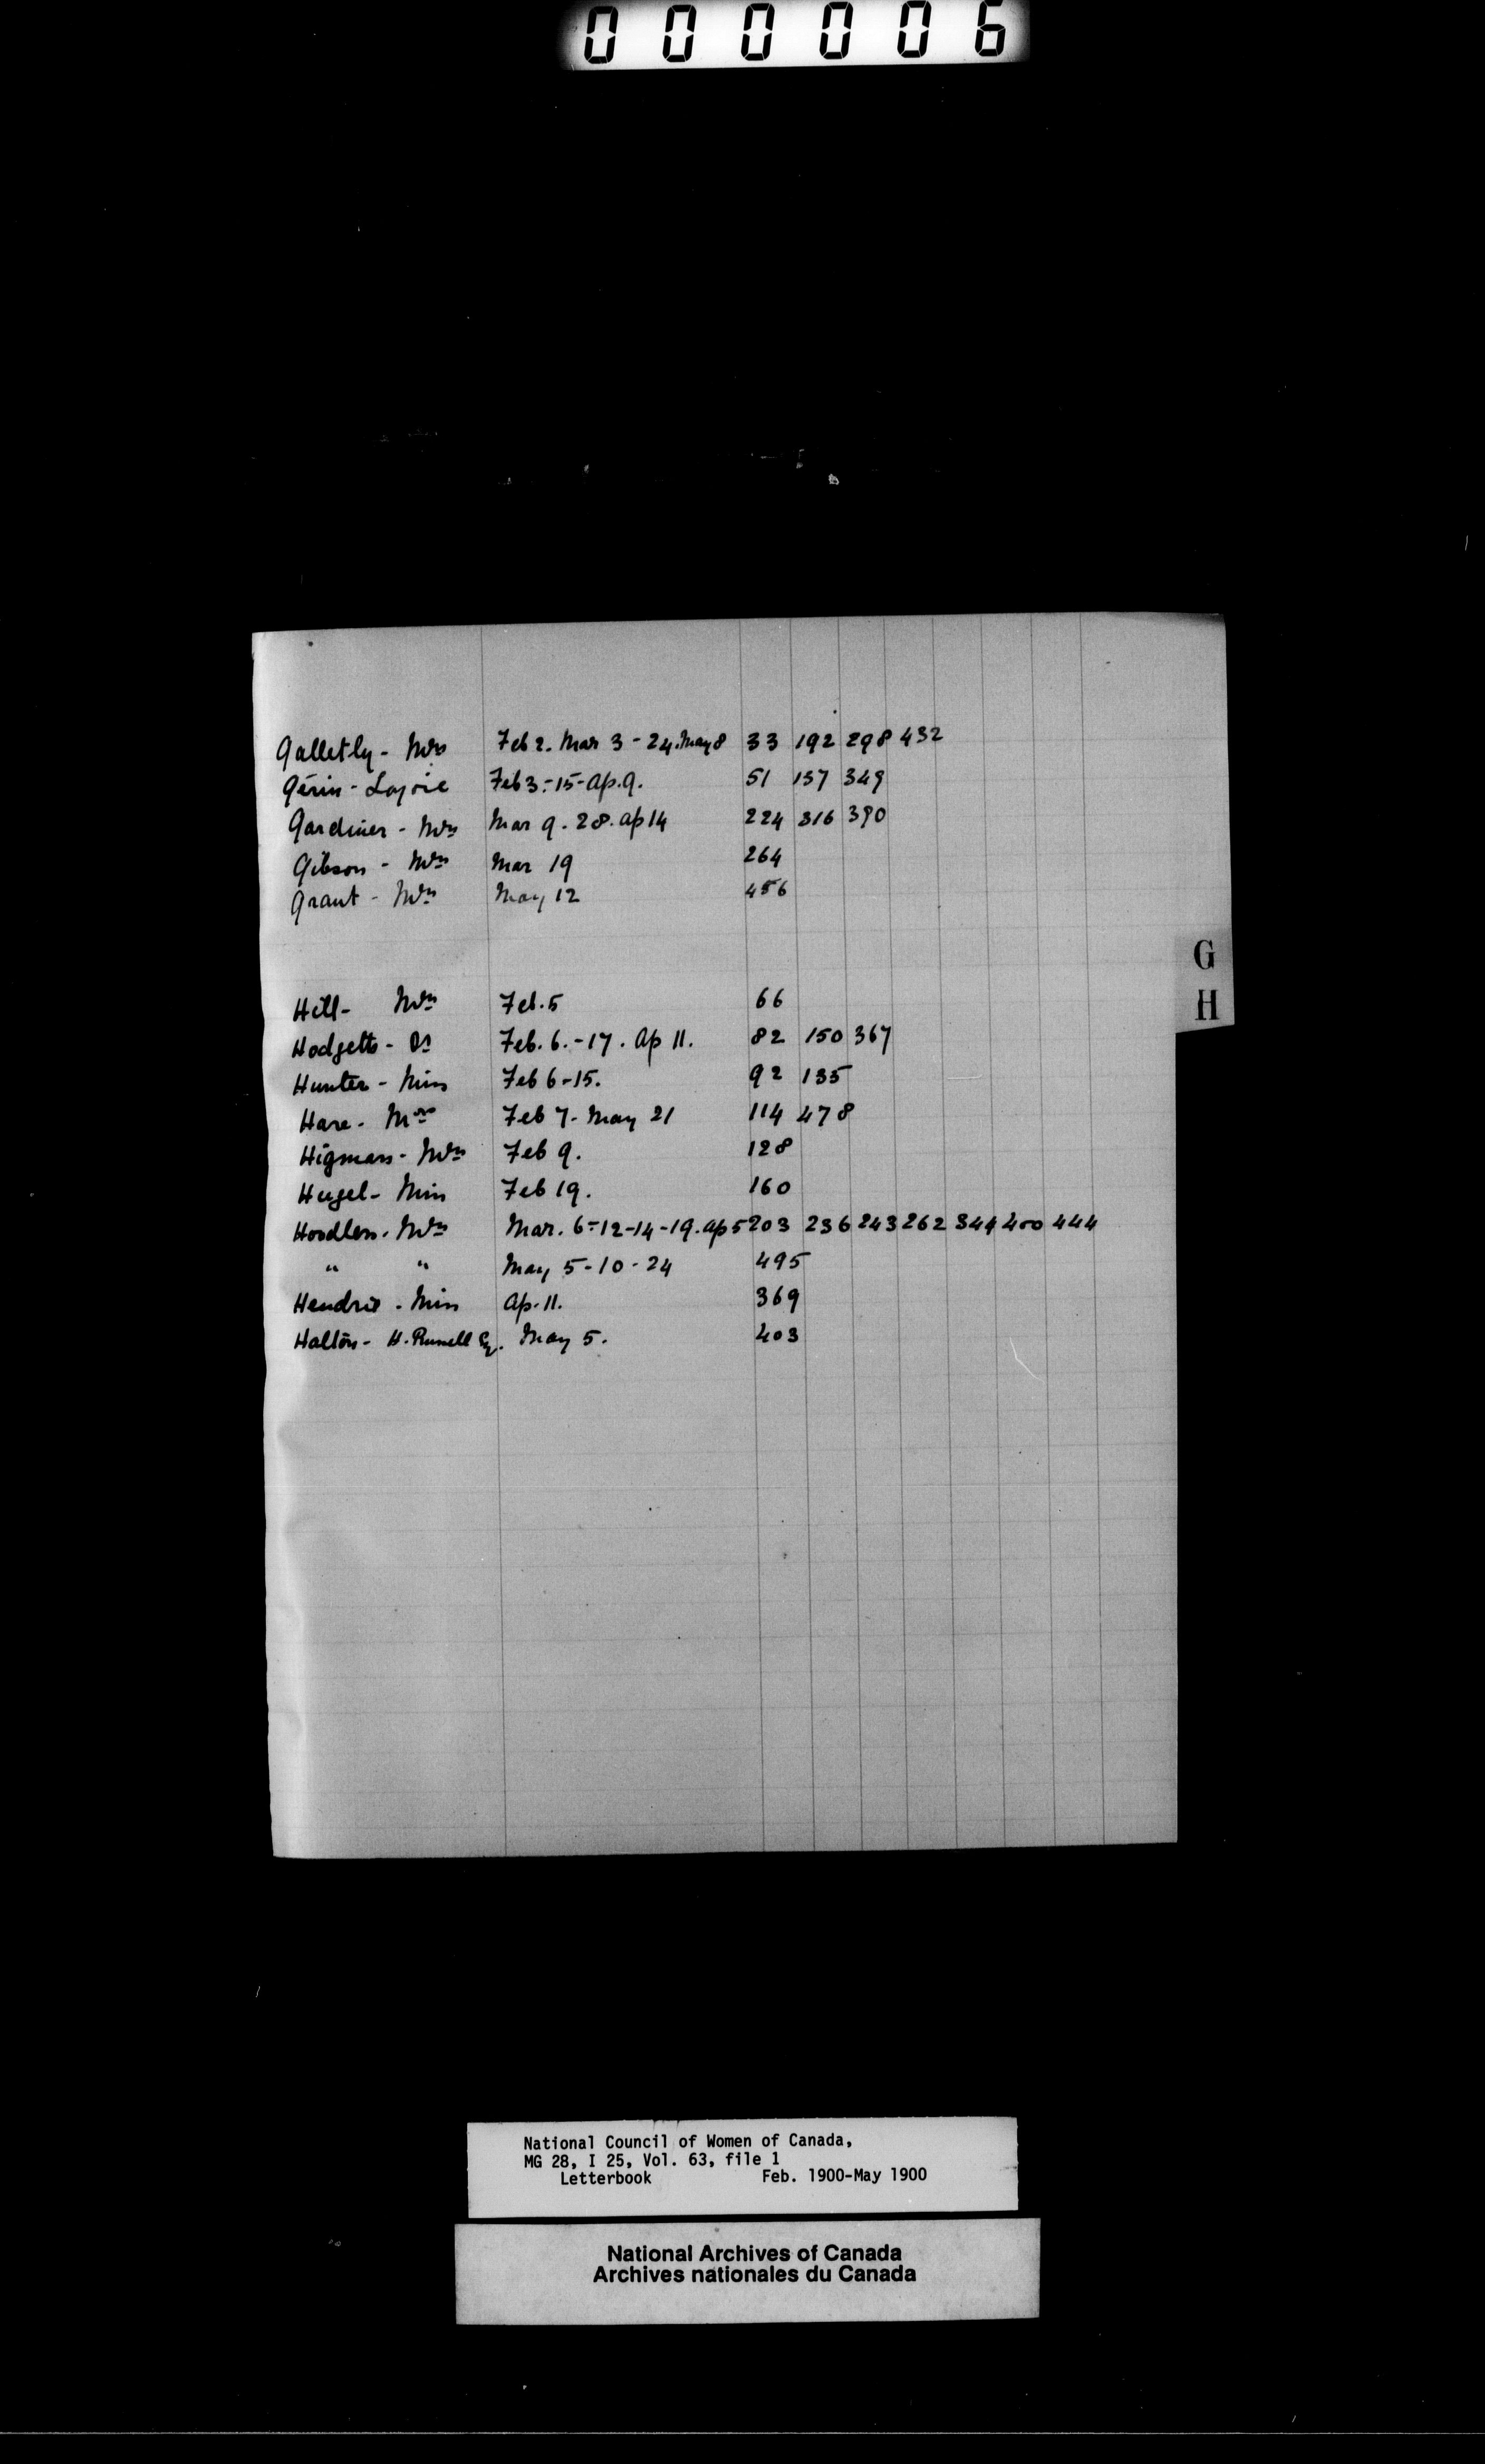 000006
Galletly - Mrs Feb 2. Mar 3 - 24. May 8 33 192 298 432
Gérin - Lajoie Feb 3 - 15 - Ap. 9. 51 137 349
Gardiner - Mrs Mar 9 - 28. Ap 14 224 316 390
Gibson - Mrs Mar 19 264
Grant - Mrs May 12 456
G
Hill - Mrs Feb. 5 66
H
Hodgetts - Dr Feb. 6. - 17. Ap 11. 82 150 367
Hunter - Miss Feb 6 - 15. 92 135
Hare - Mrs Feb 7 - May 21 114 478
Higman - Mrs Feb 9. 128
Hugel - Miss Feb 19. 160
Hoodless - Mrs Mar. 6 - 12 - 14 - 19. Ap 5 203 236 243 262 344 400 444
" " May 5 - 10 - 24 495
Hendrie - Miss Ap. 11. 369
Halton - H. Russell Esq. May 5. 403
National Council of Women of Canada,
MG 28, I 25, Vol. 63, file 1
Letterbook Feb. 1900-May 1900
National Archives of Canada
Archives nationales du Canada